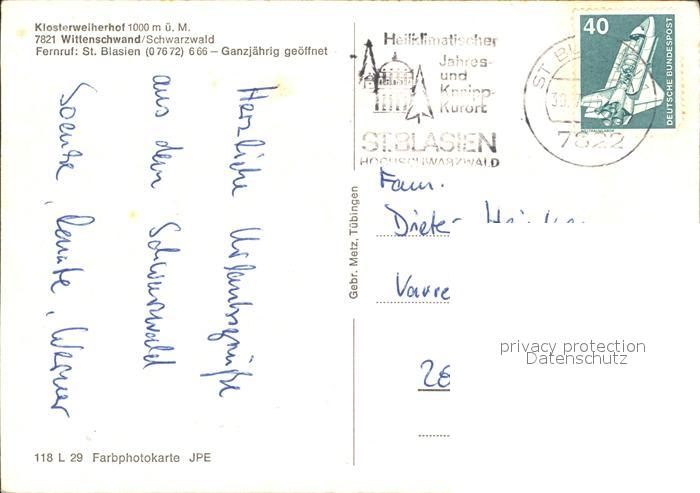 Klosterweiherhof 1000 m ü. M.
7821 Wittenschwand/Schwarzwald
Fernruf: St. Blasien (07672) 666 – Ganzjährig geöffnet
Herzliche Urlaubsgrüße
aus dem Schwarzwald
Renate, Werner
118 L 29 Farbphotokarte JPE
Gebr. Metz, Tübingen
Heilklimatischer
Jahres-
und
Kneipp-
Kurort
ST.BLASIEN
HOCHSCHWARZWALD
ST. BL
7822
40
DEUTSCHE BUNDESPOST
Fam.
Dieter
Varre
28
privacy protection
Datenschutz